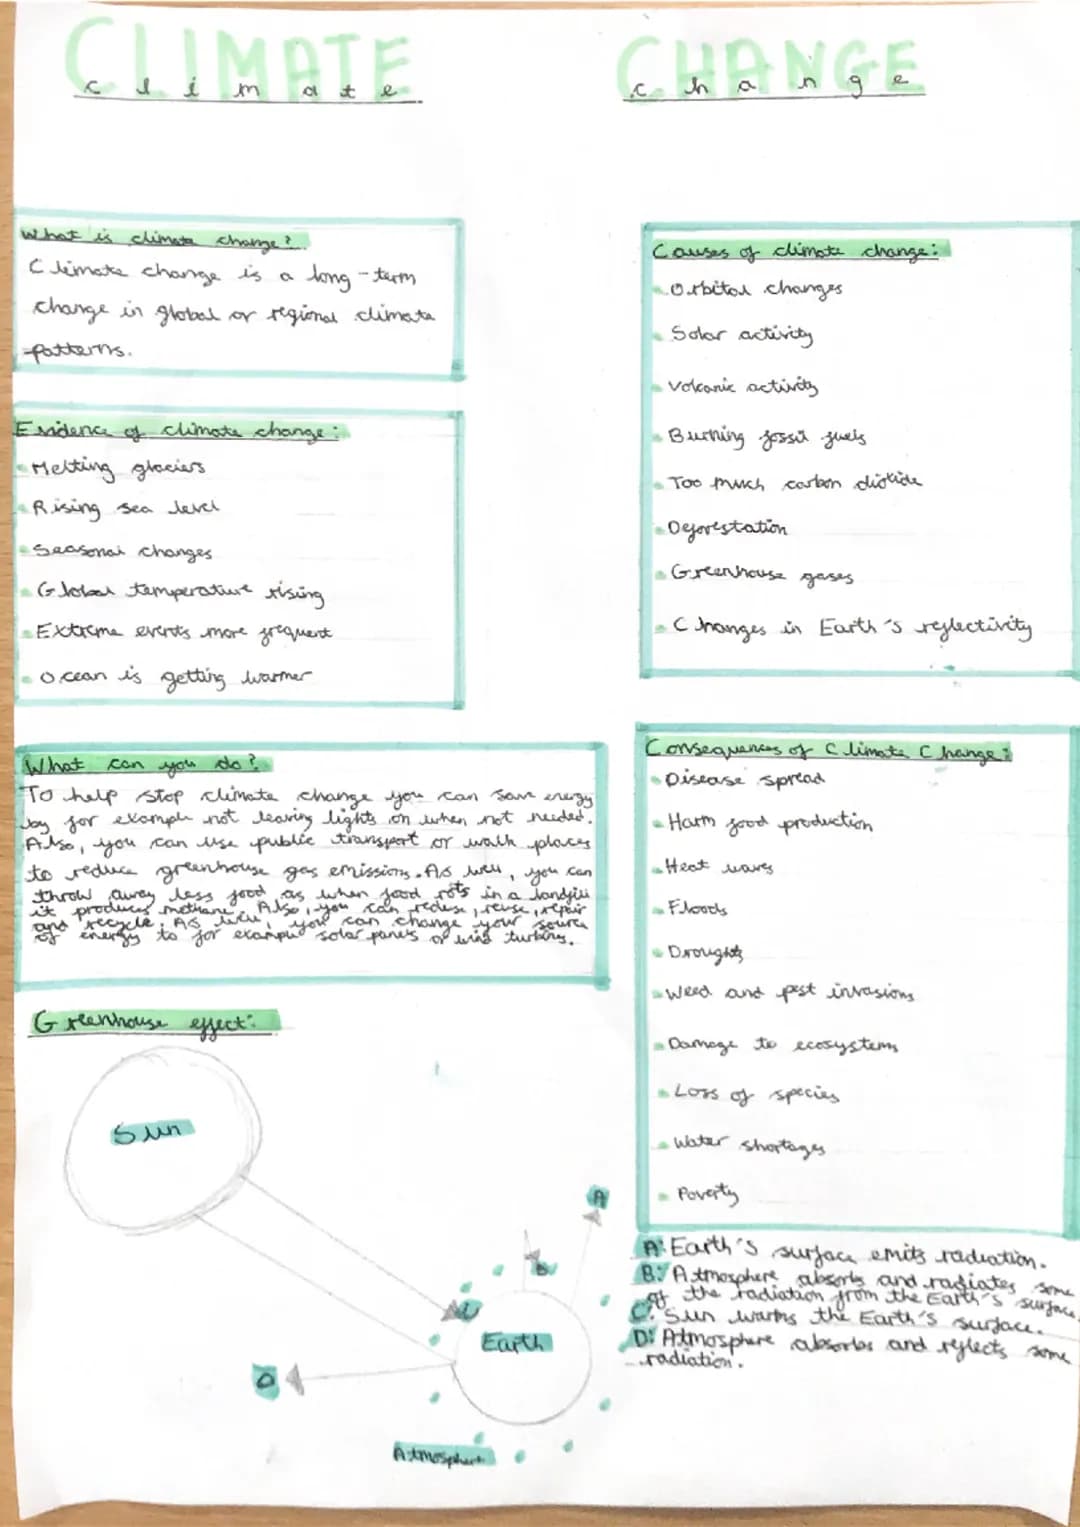 CLIMATE CHANGE
climate change
What is climate change?
Climate change is a long-term
change in global or regional climate
patterns.
Evidence of climate change:
Melting glaciers
Rising sea level
Seasonal changes
Global temperature rising
Extreme events more frequent
Ocean is getting warmer
What can you do?
To help stop climate change you can save energy
by for example not leaving lights on when not needed.
Also, you can use public transport or walk places
to reduce greenhouse gas emissions. As well, you can
throw away less food as when food rots in a landfill
it produces methane. Also, you can reduse, reuse, repair
and recycle. As well, you can change your source
of energy to for example solar panels or wind turbins.
Causes of climate change:
Orbital changes
Solar activity
Volcanic activity
Burning fossil fuels
Too much carbon dioxide
Deforestation
Greenhouse gases
Changes in Earth's reflectivity
Consequences of Climate Change:
Disease spread
Harm food production
Heat waves
Floods
Droughts
Weed and pest invasions
Damage to ecosystems
Loss of species
Water shortages
Poverty
Greenhouse effect:
Sun
A
B
C
Earth
D
Atmosphere
A: Earth's surface emits radiation.
B: Atmosphere absorbs and radiates some
of the radiation from the Earth's surface.
C: Sun warms the Earth's surface.
D: Atmosphere absorbs and reflects some
radiation.